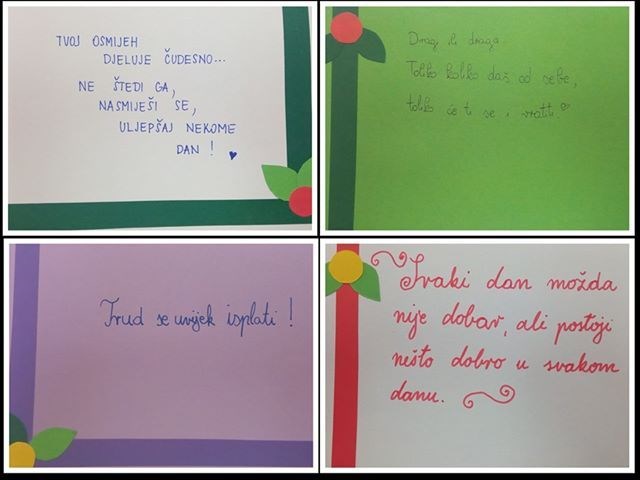 TVOJ OSMIJEH
DJELUJE ČUDESNO...
NE ŠTEDI GA,
NASMIJEŠI SE,
ULJEPŠAJ NEKOME
DAN!
Dragi ili draga
Toliko koliko daš od sebe,
toliko će ti se i vratiti.
Trud se uvijek isplati!
Svaki dan možda
nije dobar, ali postoji
nešto dobro u svakom
danu.